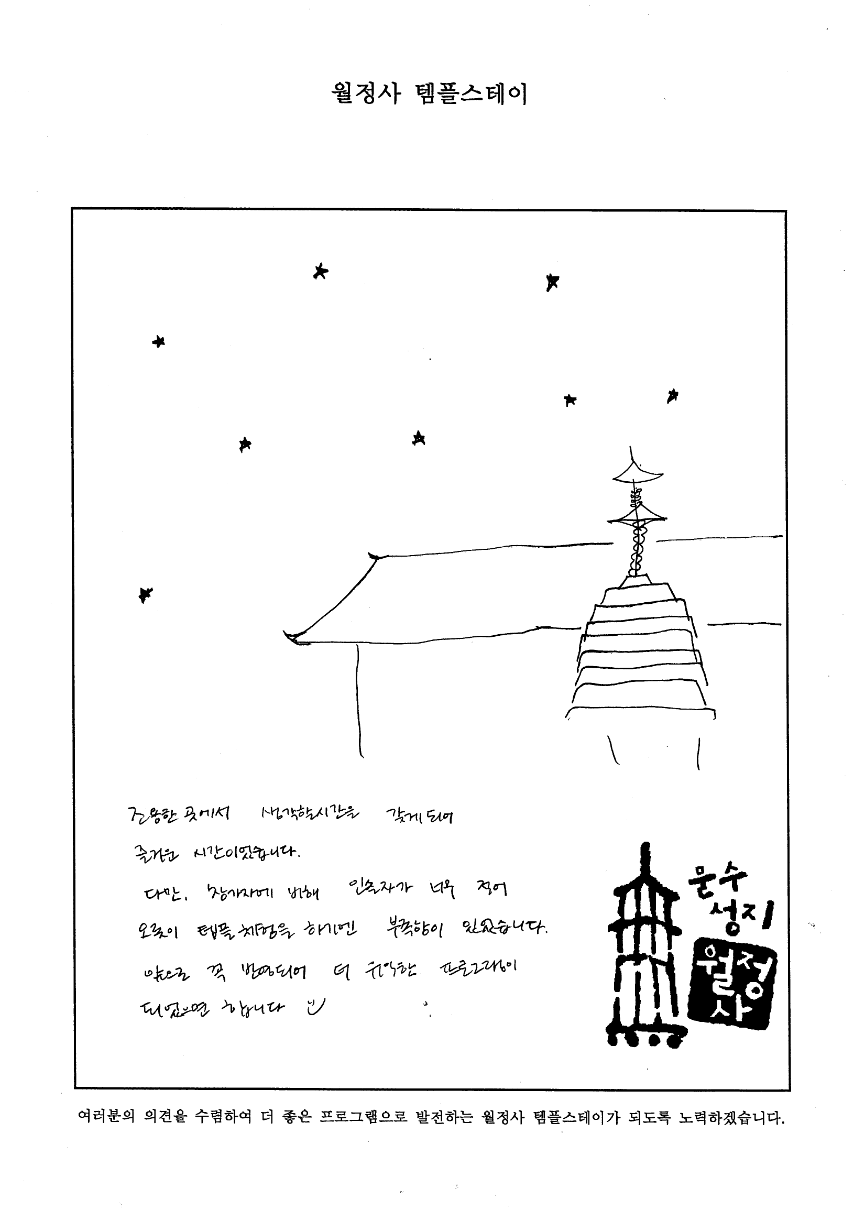 월정사 템플스테이
조용한 곳에서 생각할시간을 갖게되어
즐거운 시간이었습니다.
다만, 참가자에 비해 인솔자가 너무 적어
오롯이 템플체험을 하기엔 부족함이 있었습니다.
앞으로 꼭 반영되어 더 유익한 프로그램이
되었으면 합니다
문수
성지
월정
사
여러분의 의견을 수렴하여 더 좋은 프로그램으로 발전하는 월정사 템플스테이가 되도록 노력하겠습니다.